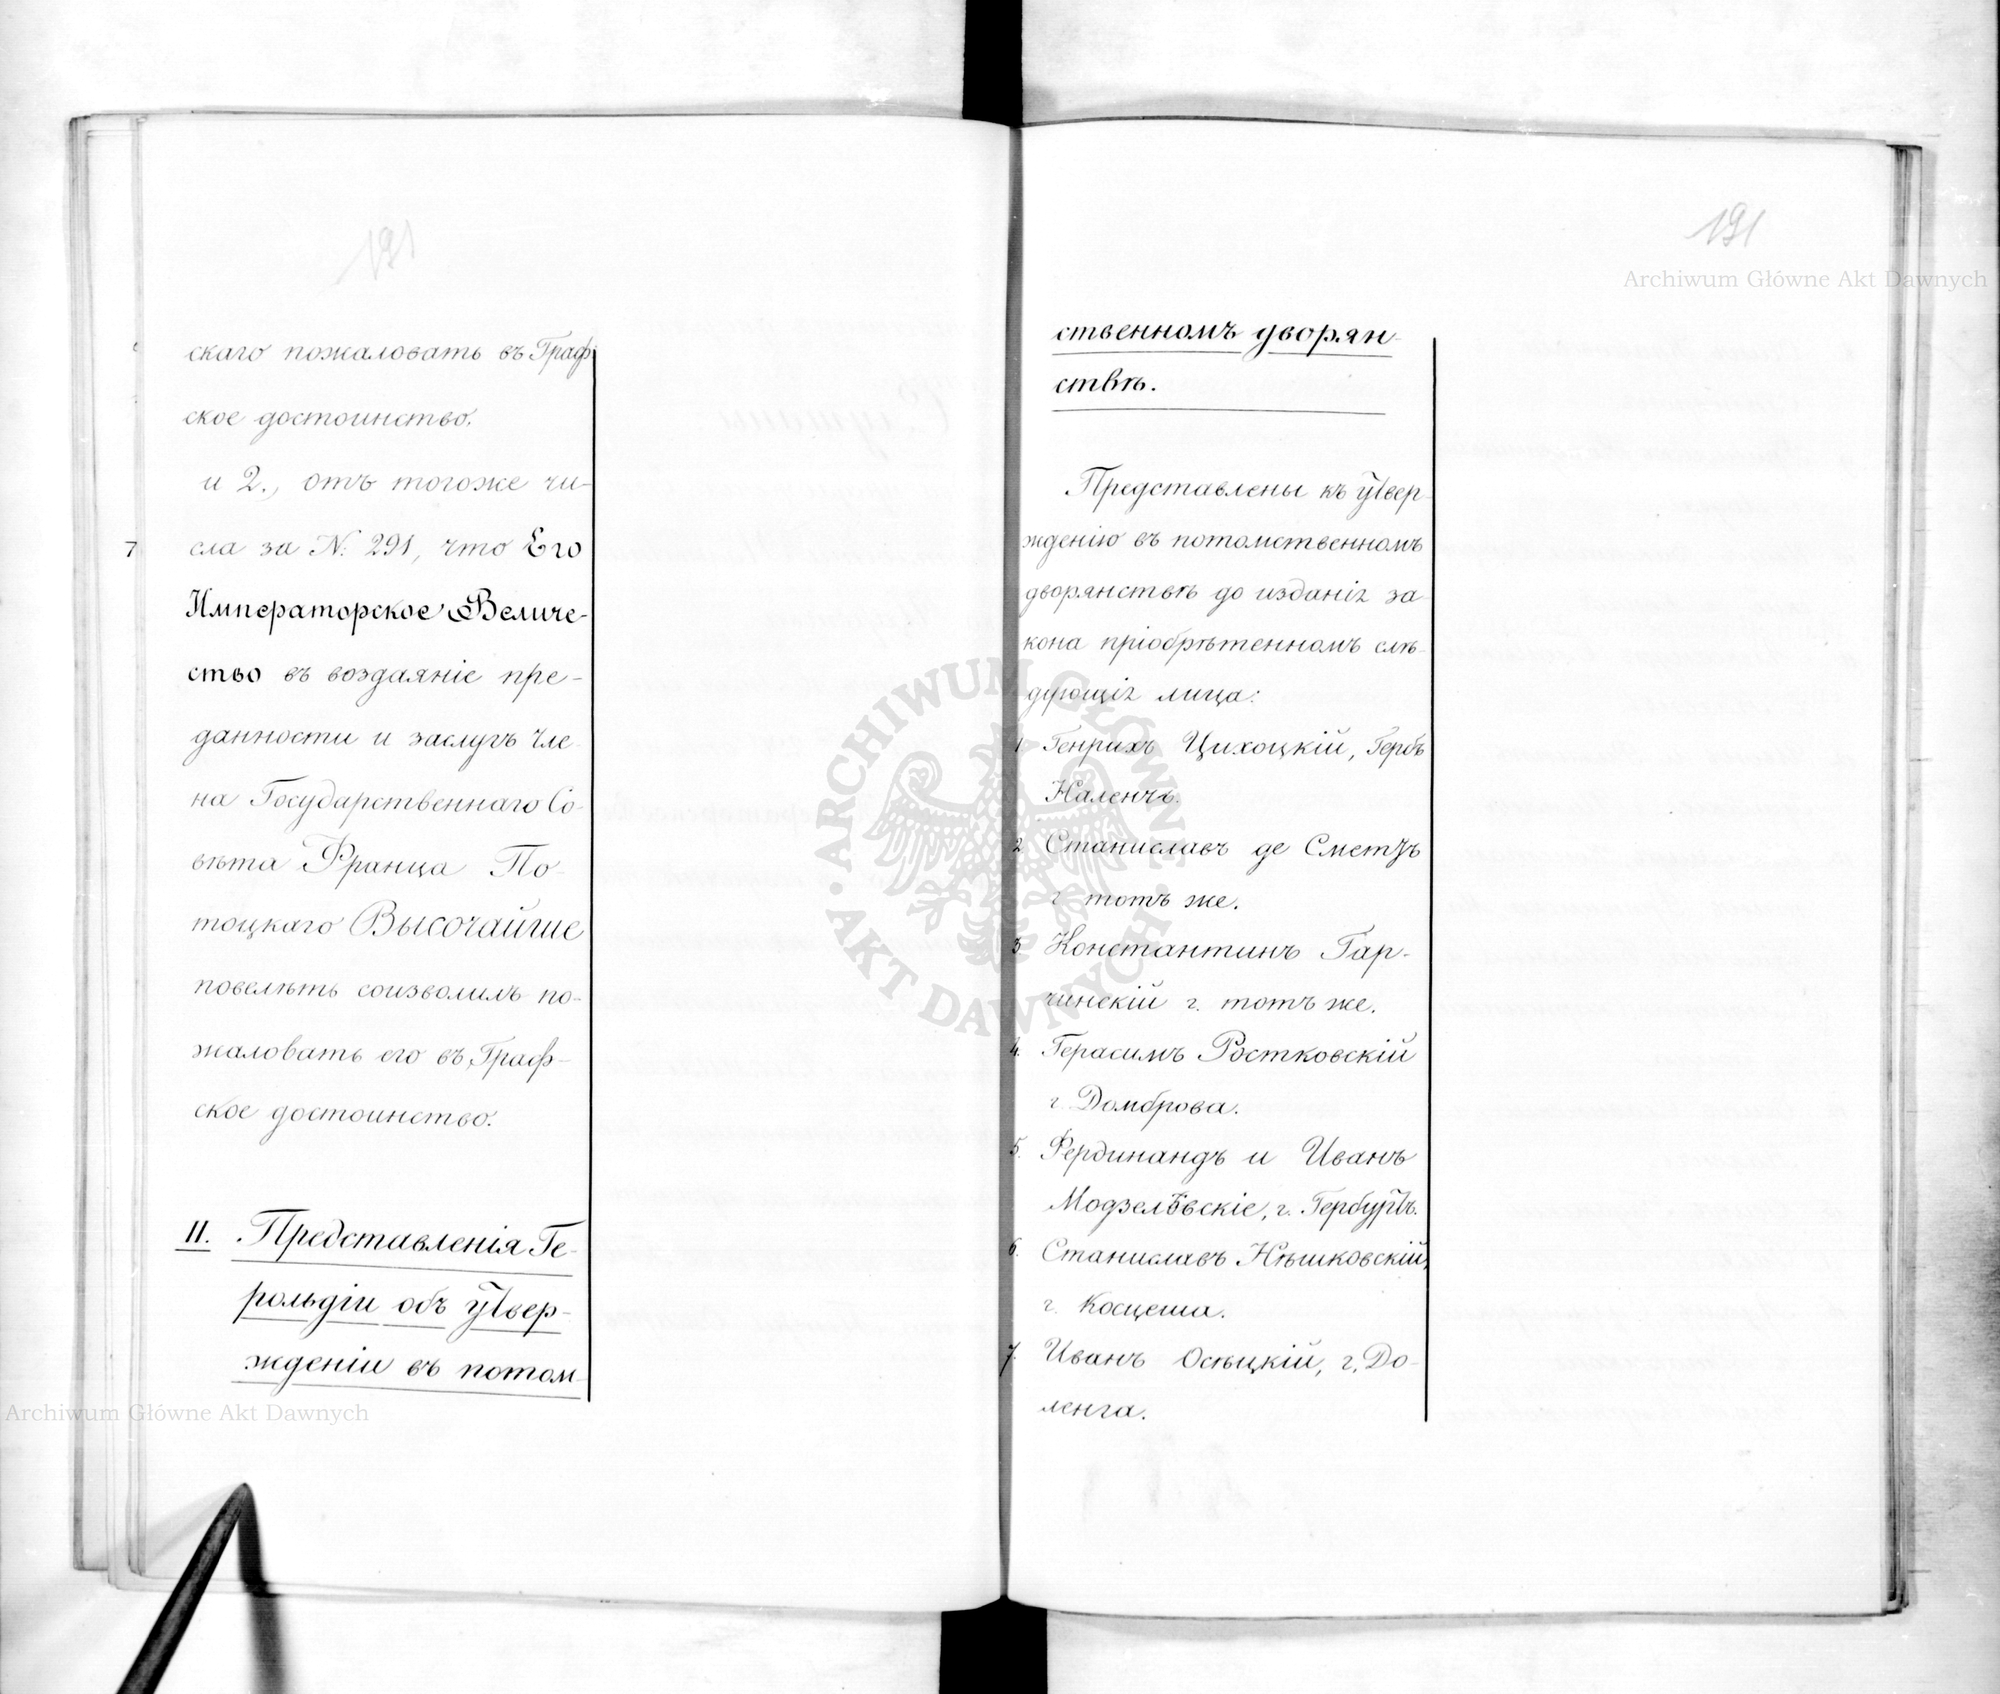 191
скаго пожаловать въ Граф-
ское достоинство.
и 2., отъ тогоже чи-
7 сла за №: 291, что Его
Императорское Величе-
ство въ воздаяніе пре-
данности и заслугъ Чле-
на Государственнаго Со-
вѣта Франца По-
тоцкаго Высочайше
повелѣть соизволилъ по-
жаловать его въ Граф-
ское достоинство.
II. Представленія Ге-
рольдіи объ утвер-
жденіи въ потом-
191
Archiwum Główne Akt Dawnych
ственномъ дворян-
ствѣ.
Представлены къ утвер-
жденію въ потомственномъ
дворянствѣ до изданія за-
кона пріобрѣтенномъ слѣ-
дующія лица:
1 Генрихъ Цихоцкій, Гербъ
Наленчъ.
2 Станиславъ де Сметъ
г. тотъ же.
3 Константинъ Гар-
чинскій г. тотъ же.
4. Герасимъ Ростковскій
г. Домброва.
5. Фердинандъ и Иванъ
Модзелѣвскіе, г. Гербуртъ.
6. Станиславъ Нѣшковскій,
г. Косцеша.
7. Иванъ Осѣцкій, г. До-
ленга.
ARCHIWUM GŁÓWNE
AKT DAWNYCH
Archiwum Główne Akt Dawnych